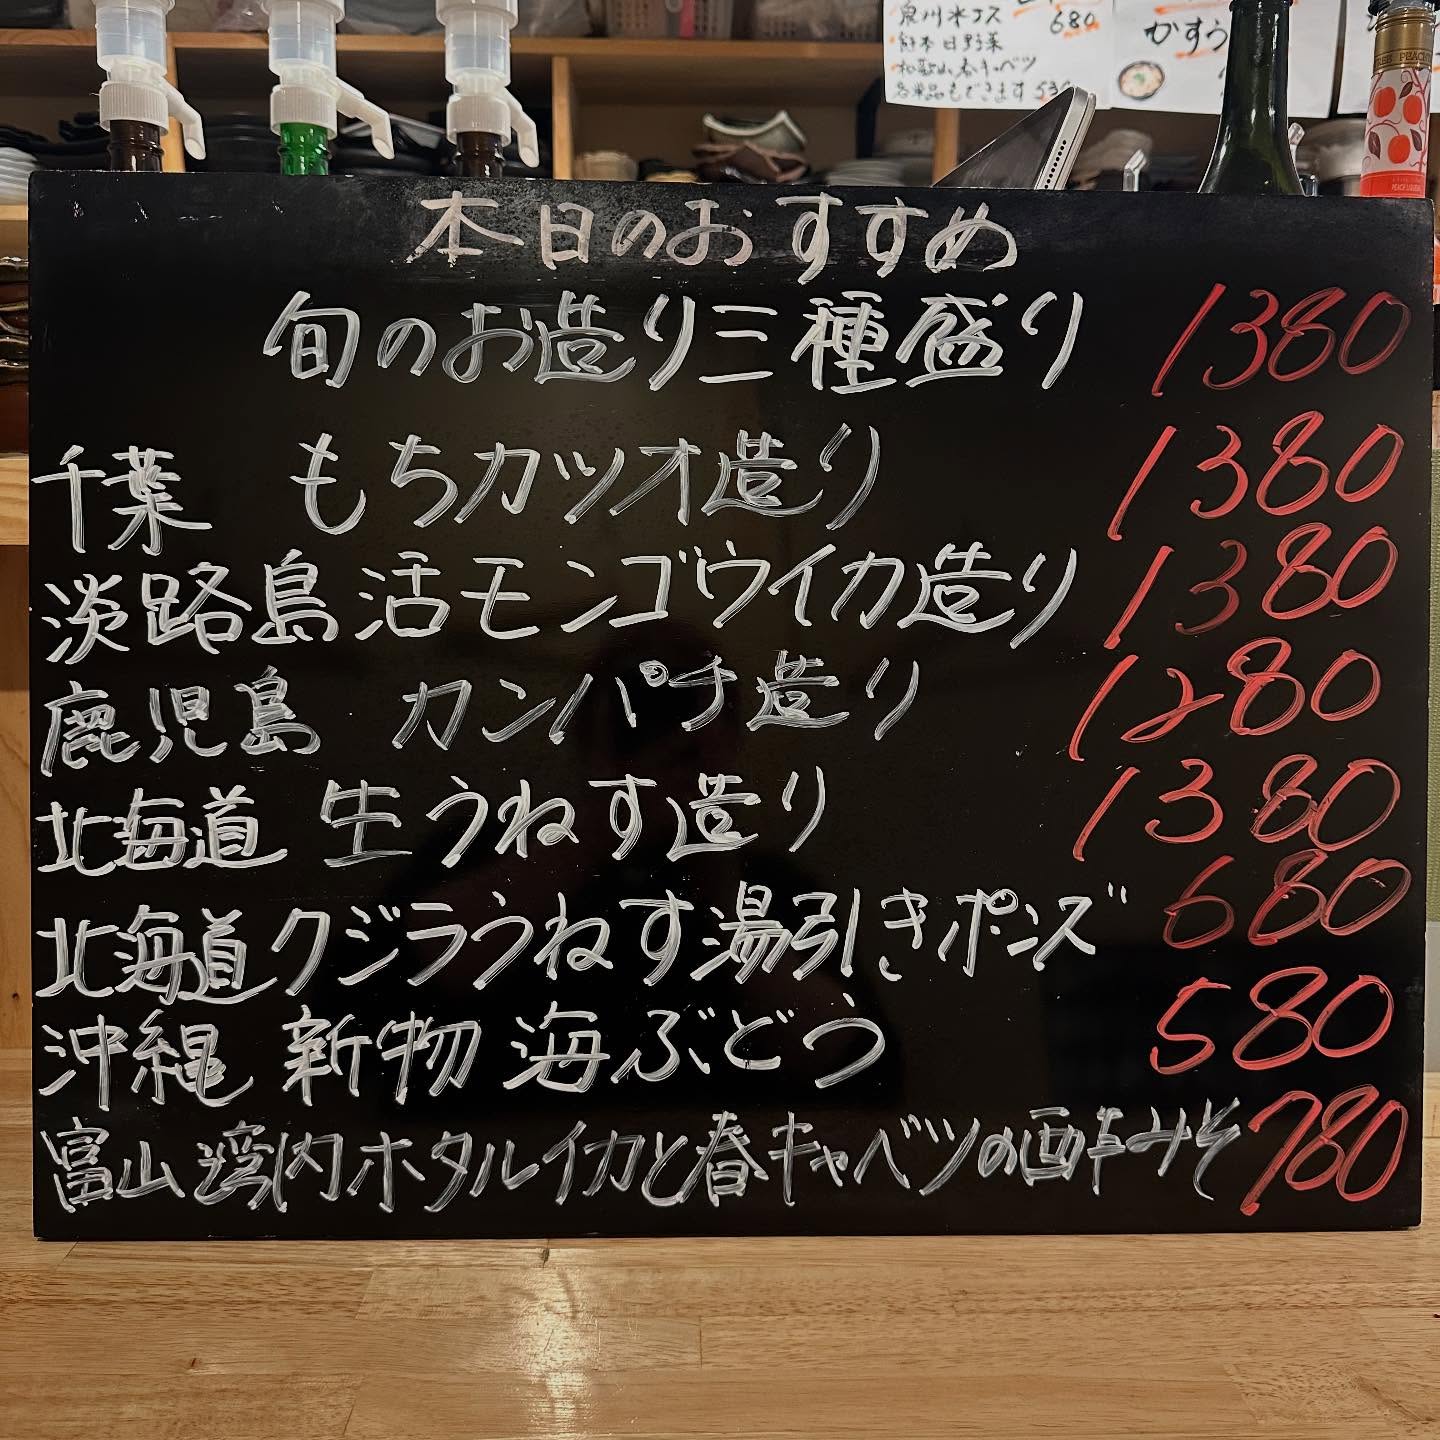 泉州水ナス 680
熊本日野菜
和歌山春キャベツ
かすう
PEACH LIQUEUR
本日のおすすめ
旬のお造り三種盛り 1380
千葉 もちカツオ造り 1380
淡路島 活モンゴウイカ造り 1380
鹿児島 カンパチ造り 1280
北海道 生うねす造り 1380
北海道クジラうねす湯引きポンズ 680
沖縄 新物 海ぶどう 580
富山湾内ホタルイカと春キャベツの酉辛みそ 780